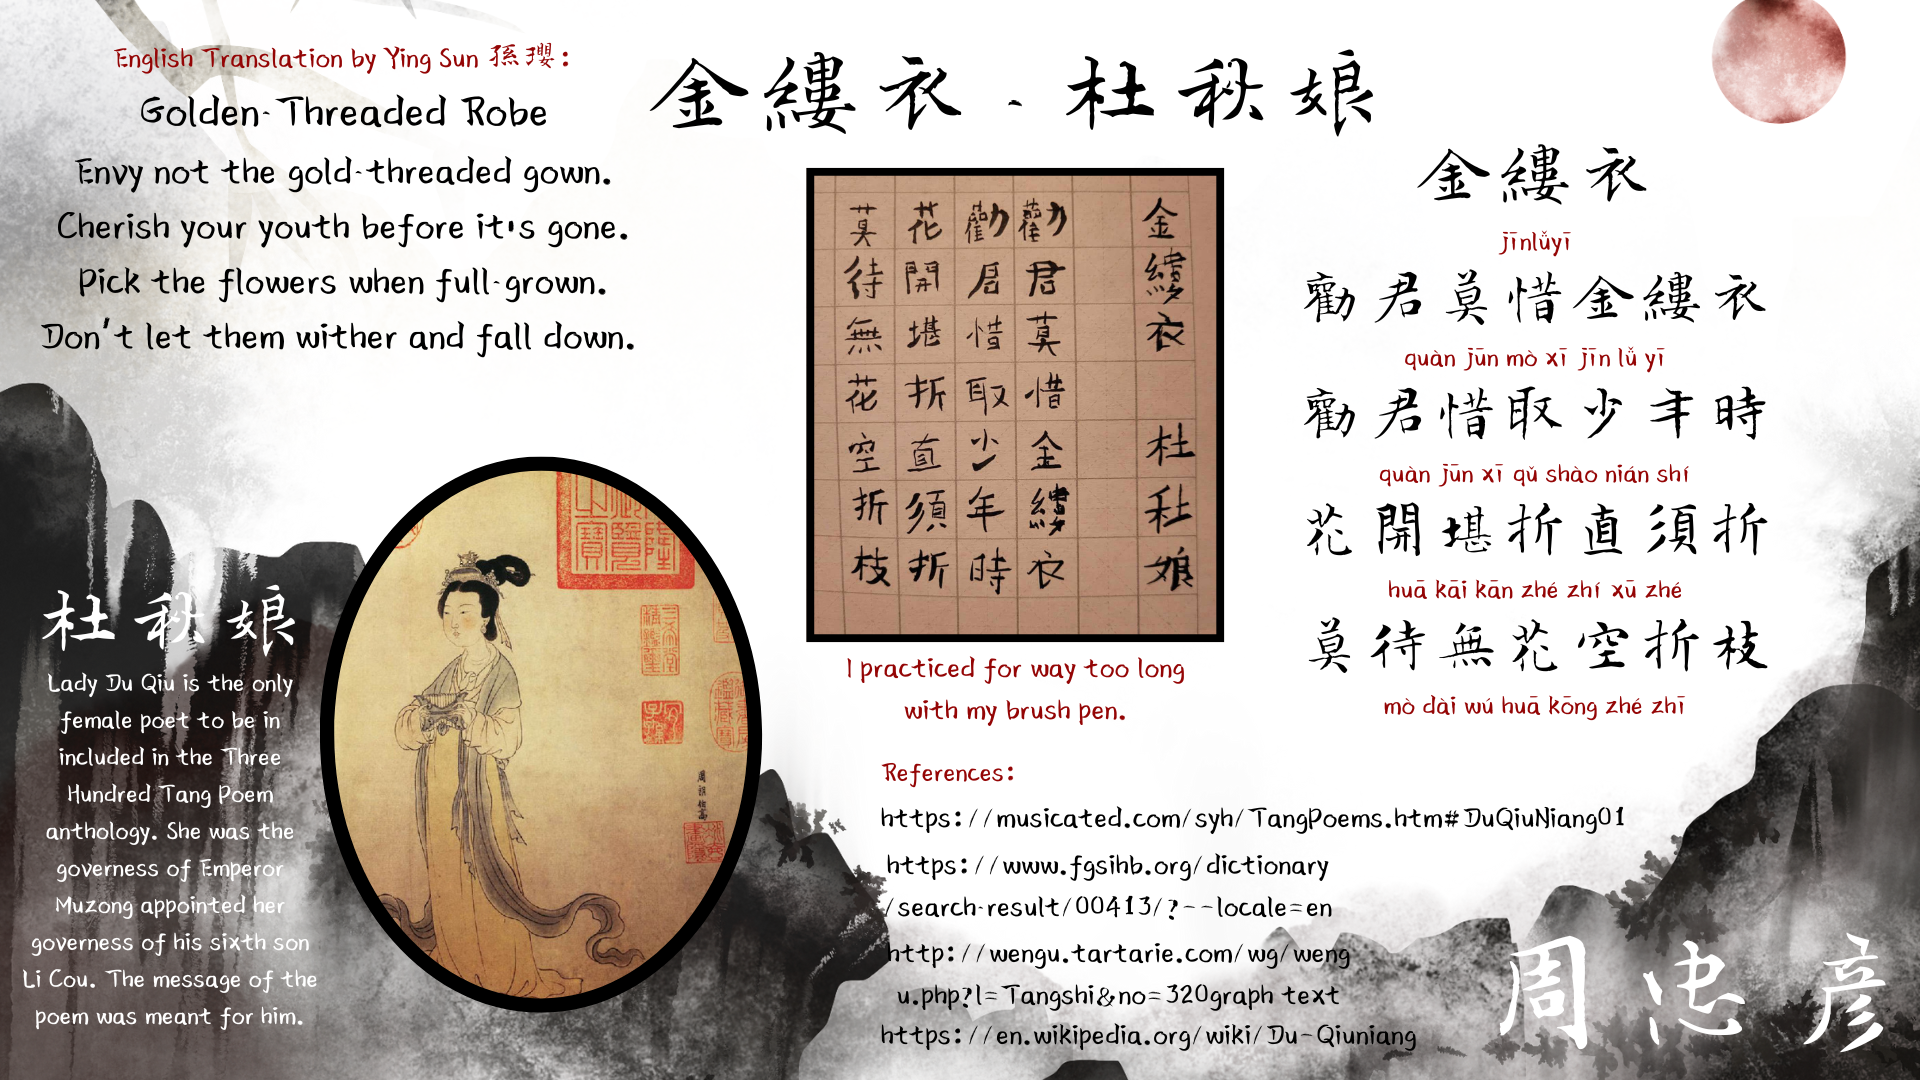 English Translation by Ying Sun 孫瓔:
Golden-Threaded Robe
Envy not the gold-threaded gown.
Cherish your youth before it's gone.
Pick the flowers when full-grown.
Don't let them wither and fall down.
金縷衣 - 杜秋娘
金縷衣 杜秋娘
勸君莫惜金縷衣
勸君惜取少年時
花開堪折直須折
莫待無花空折枝
I practiced for way too long
with my brush pen.
金縷衣
jīnlǚyī
勸君莫惜金縷衣
quàn jūn mò xī jīn lǚ yī
勸君惜取少年時
quàn jūn xī qǔ shào nián shí
花開堪折直須折
huā kāi kān zhé zhí xū zhé
莫待無花空折枝
mò dài wú huā kōng zhé zhī
杜秋娘
Lady Du Qiu is the only
female poet to be in
included in the Three
Hundred Tang Poem
anthology. She was the
governess of Emperor
Muzong appointed her
governess of his sixth son
Li Cou. The message of the
poem was meant for him.
References:
https://musicated.com/syh/TangPoems.htm#DuQiuNiang01
https://www.fgsihb.org/dictionary
/search-result/00413/?--locale=en
http://wengu.tartarie.com/wg/weng
u.php?l=Tangshi&no=320graph text
https://en.wikipedia.org/wiki/Du-Qiuniang
周忠彦